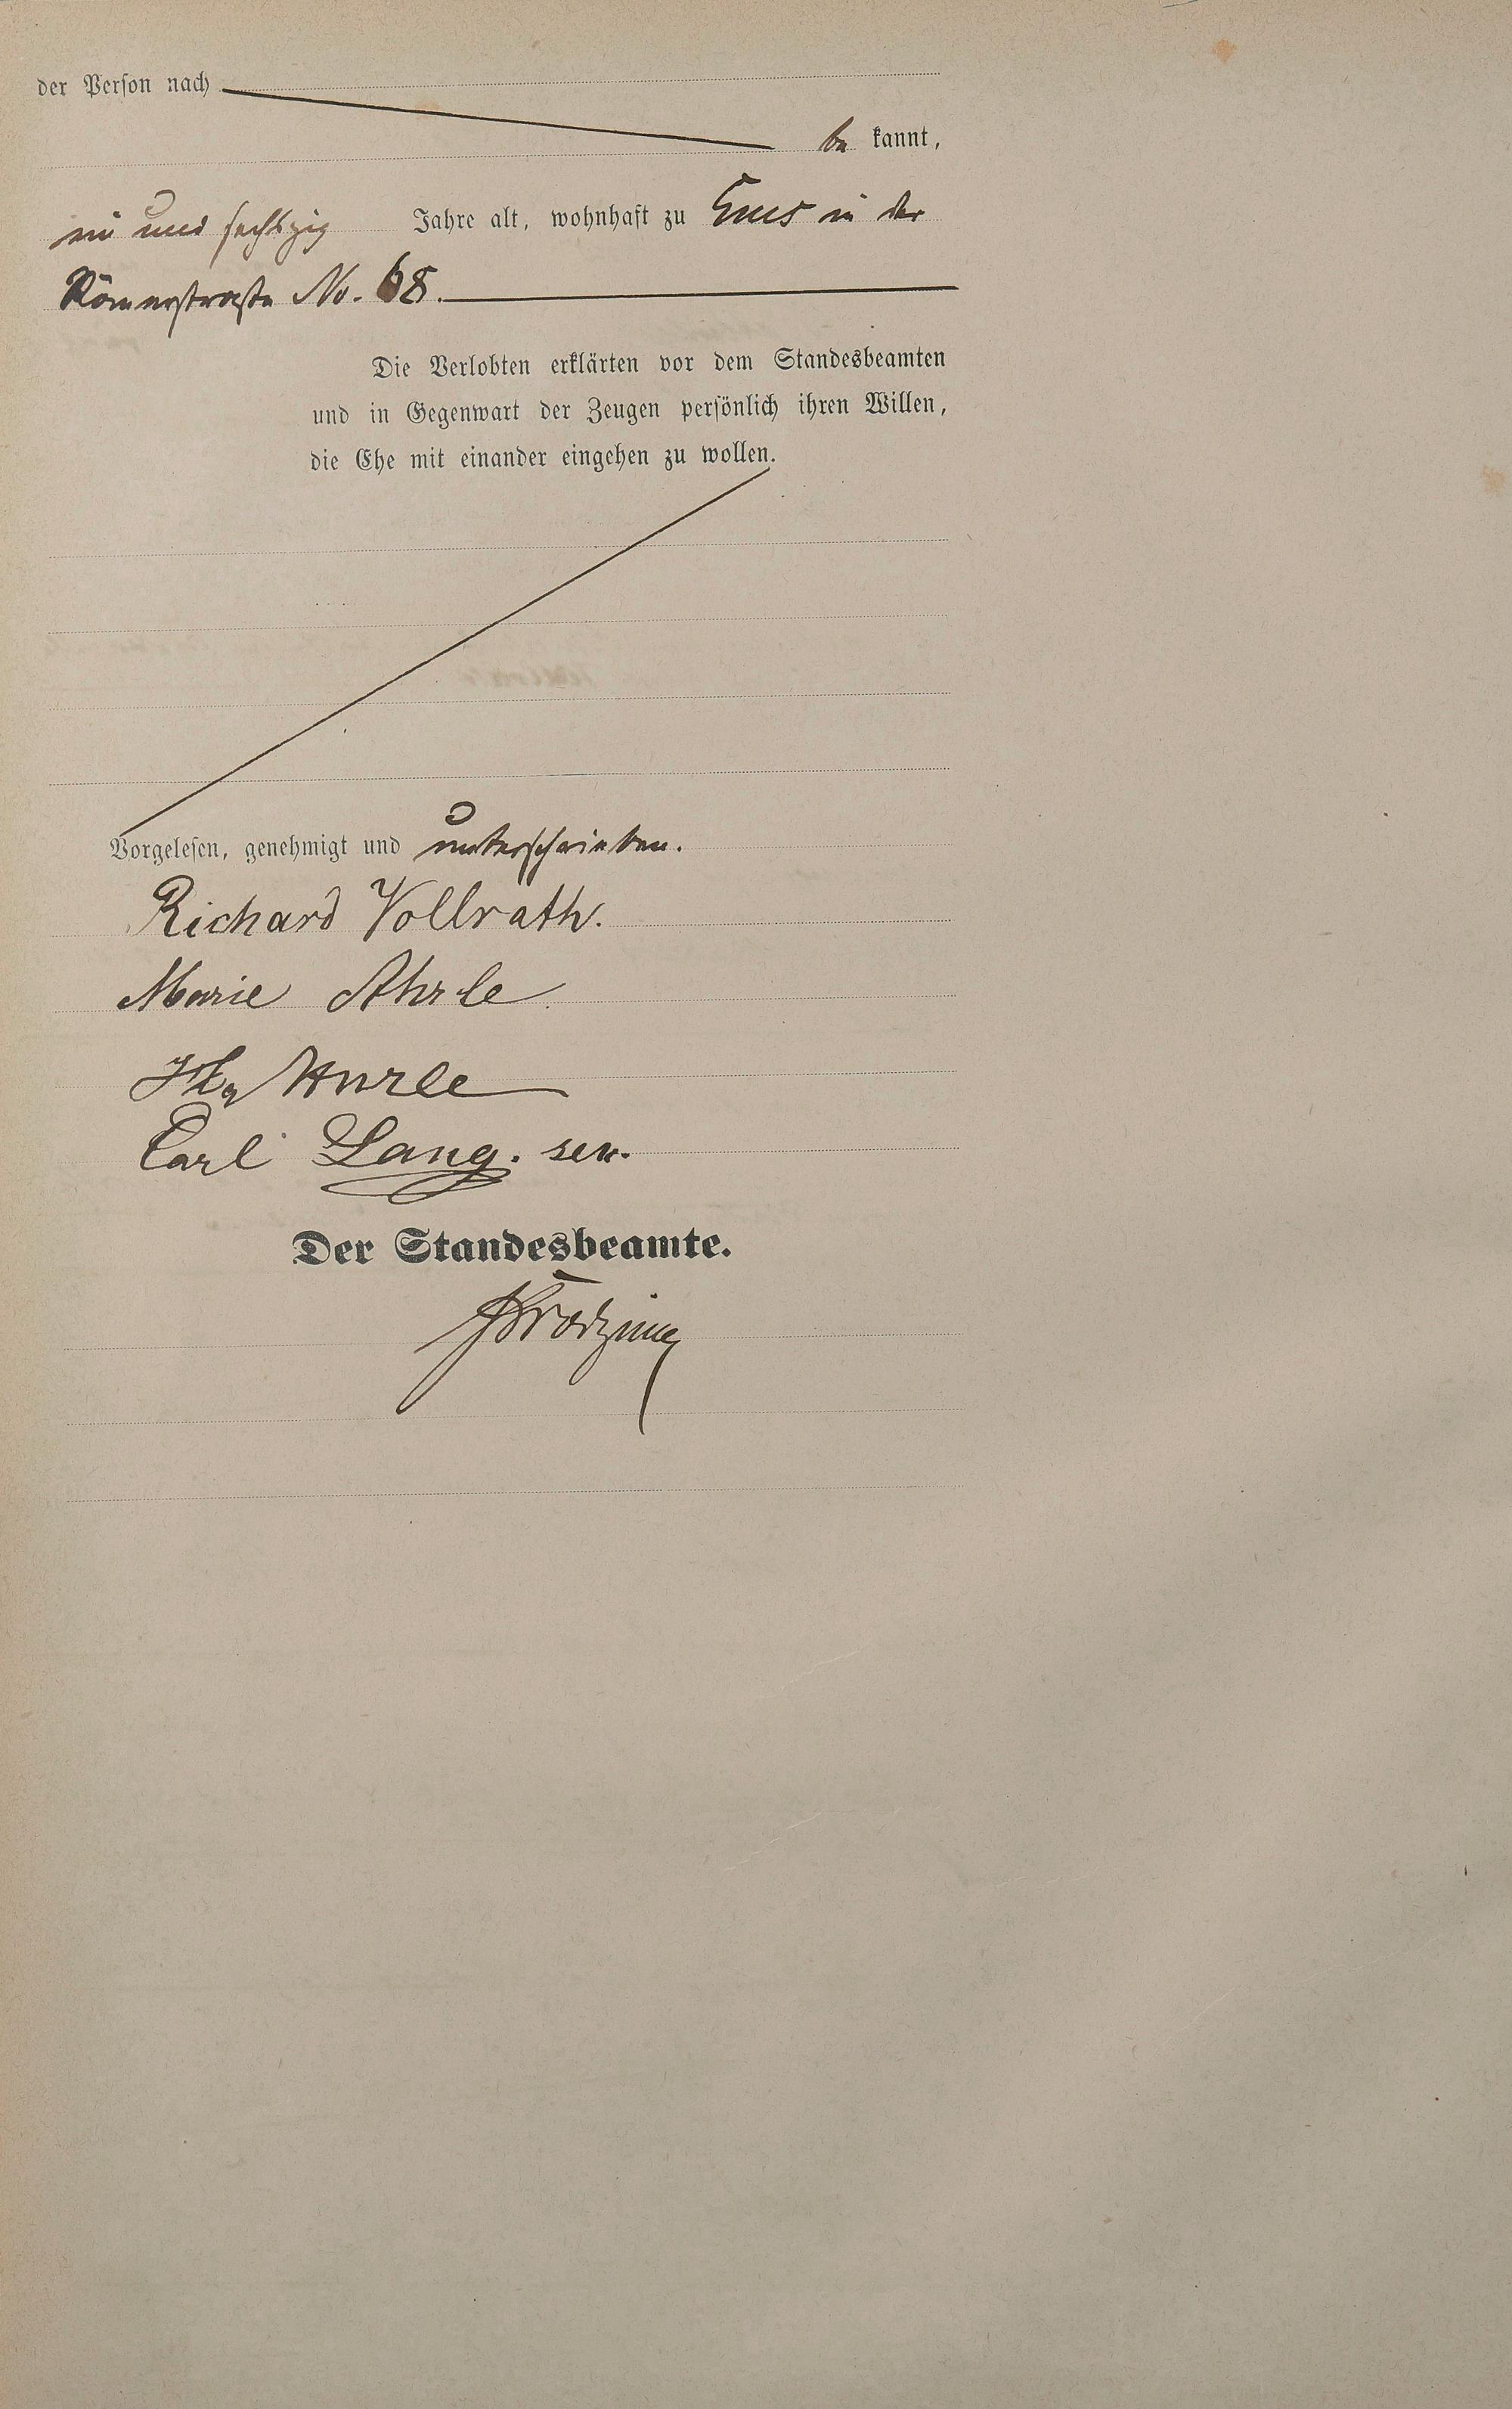 der Person nach
be kannt,
ein und sechszig Jahre alt, wohnhaft zu Ems in der
Römerstraße No. 68.
Die Verlobten erklärten vor dem Standesbeamten
und in Gegenwart der Zeugen persönlich ihren Willen,
die Ehe mit einander eingehen zu wollen.
Vorgelesen, genehmigt und unterschrieben.
Richard Vollrath.
Marie Ahrle
Carl Lang. sen.
Der Standesbeamte.